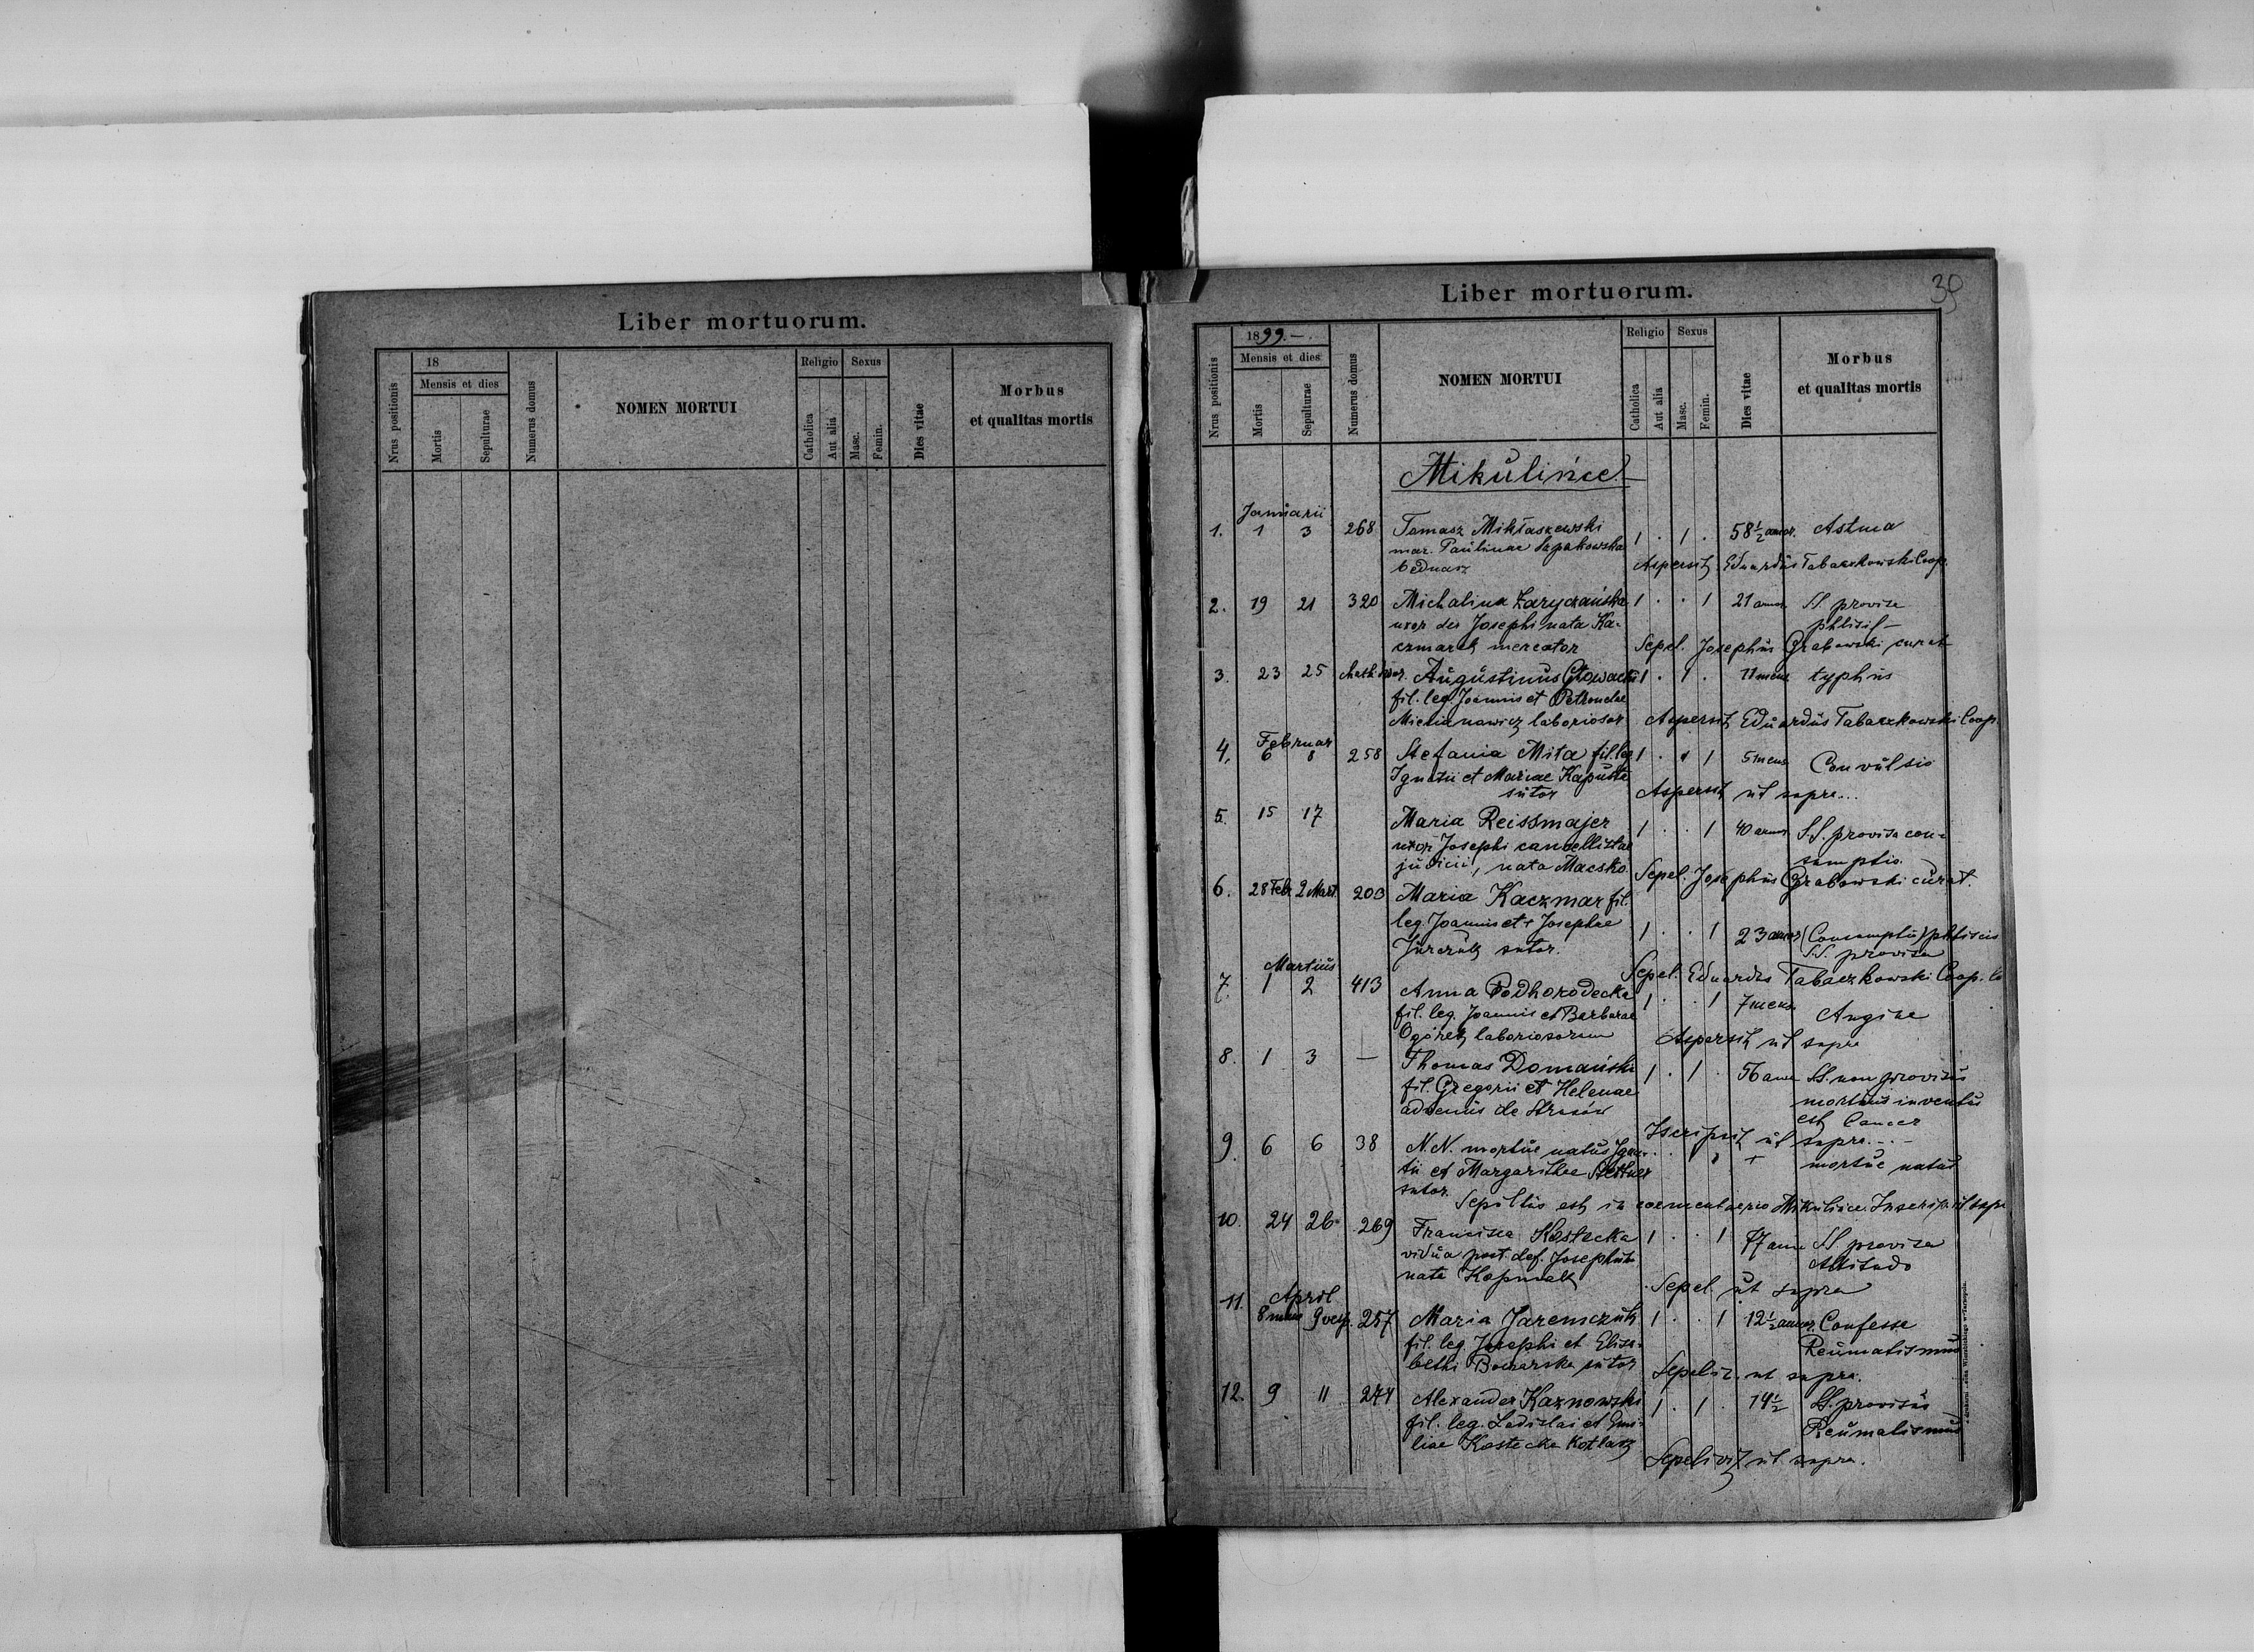 Liber mortuorum.
18
Mensis et dies
Nrus positionis
Mortis
Sepulturae
Numerus domus
NOMEN MORTUI
Religio
Sexus
Catholica
Aut alia
Masc.
Femin.
Dies vitae
Morbus
et qualitas mortis
Liber mortuorum.
39
1899.-
Mensis et dies
Nrus positionis
Mortis
Sepulturae
Numerus domus
NOMEN MORTUI
Religio
Sexus
Catholica
Aut alia
Masc.
Femin.
Dies vitae
Morbus
et qualitas mortis
Mikulińce
Januarii
1. 1 3 268 Tomasz Mikłaszewski 1 . 1 . 58 1/2 annor. Astma
mar. Paulinae Szpakowska
bednarz Aspersit Eduardus Tabaczkowski Coop.
2. 19 21 320 Michalina Zaryczańska 1 . . 1 21 annor. SS. provisa
uxor Josephi nata Ka-
czmarek mercator Sepel. Josephus Grabowski curat
3. 23 25 Augustinus Głowacki 1 . 1 . 11 mens typhus
fil. leg. Joannis et Petronelae
laboriosor Aspersit Eduardus Tabaczkowski Coop.
Februar
4. 6 8 258 Stefania Mita fil. leg. 1 . . 1 5 mens Convulsio
Ignatii et Mariae Kapusta
sutor Aspersit ut supra...
5. 15 17 Maria Reissmajer 1 . . 1 40 annor S.S. provisa con-
uxor Josephi cancellistae sumptio.
judicii, nata Macsko Sepel. Josephus Grabowski curat.
6. 28 Febr 2 Mart. 203 Maria Kaczmar fil.
leg. Joannis et Josephae 1 . . 1 23 annor (Consumptus) phtisis
sutor. SS. provisa
Martius Sepel. Eduardus Tabaczkowski Coop.
7. 1 2 413 Anna Podhorodecka 1 . . 1 7 mens. Angina
fil. leg. Joannis et Barbarae
Ogórek laboriosorum Aspersit ut supra
8. 1 3 — Thomas Domański 1 . 1 . 56 ann SS. non provisus
fil. Gregorii et Helenae mortuus inventus
advenus de Strusów est Cancer
Iscripsit ut supra...
9. 6 6 38 N.N. mortue natus Igna- mortue natus
tii et Margarithae Stettner
sutor. Sepultus est in coementaerio Mikulińce. Inscripsit ut supr
10. 24 26 269 Francisca Kostecka 1 . . 1 77 ann SS provisa
vidua post. def. Josephum
nata Sepel ut supra
April
11. 8 mane 9 vesp. 257 Maria Jaremczuk 1 . . 1 12 1/2 annor. Confessa
fil. leg. Josephi et Elisa- Reumatismus
bethi sutor Sepeliv. ut supra.
12. 9 11 244 Alexander Kaznowski 1 . 1 . 14 1/2 SS. provisus
fil. leg. Ladislai et Emi- Reumatismus
liae Kostecka Kotlarz
Sepelivit ut supra.